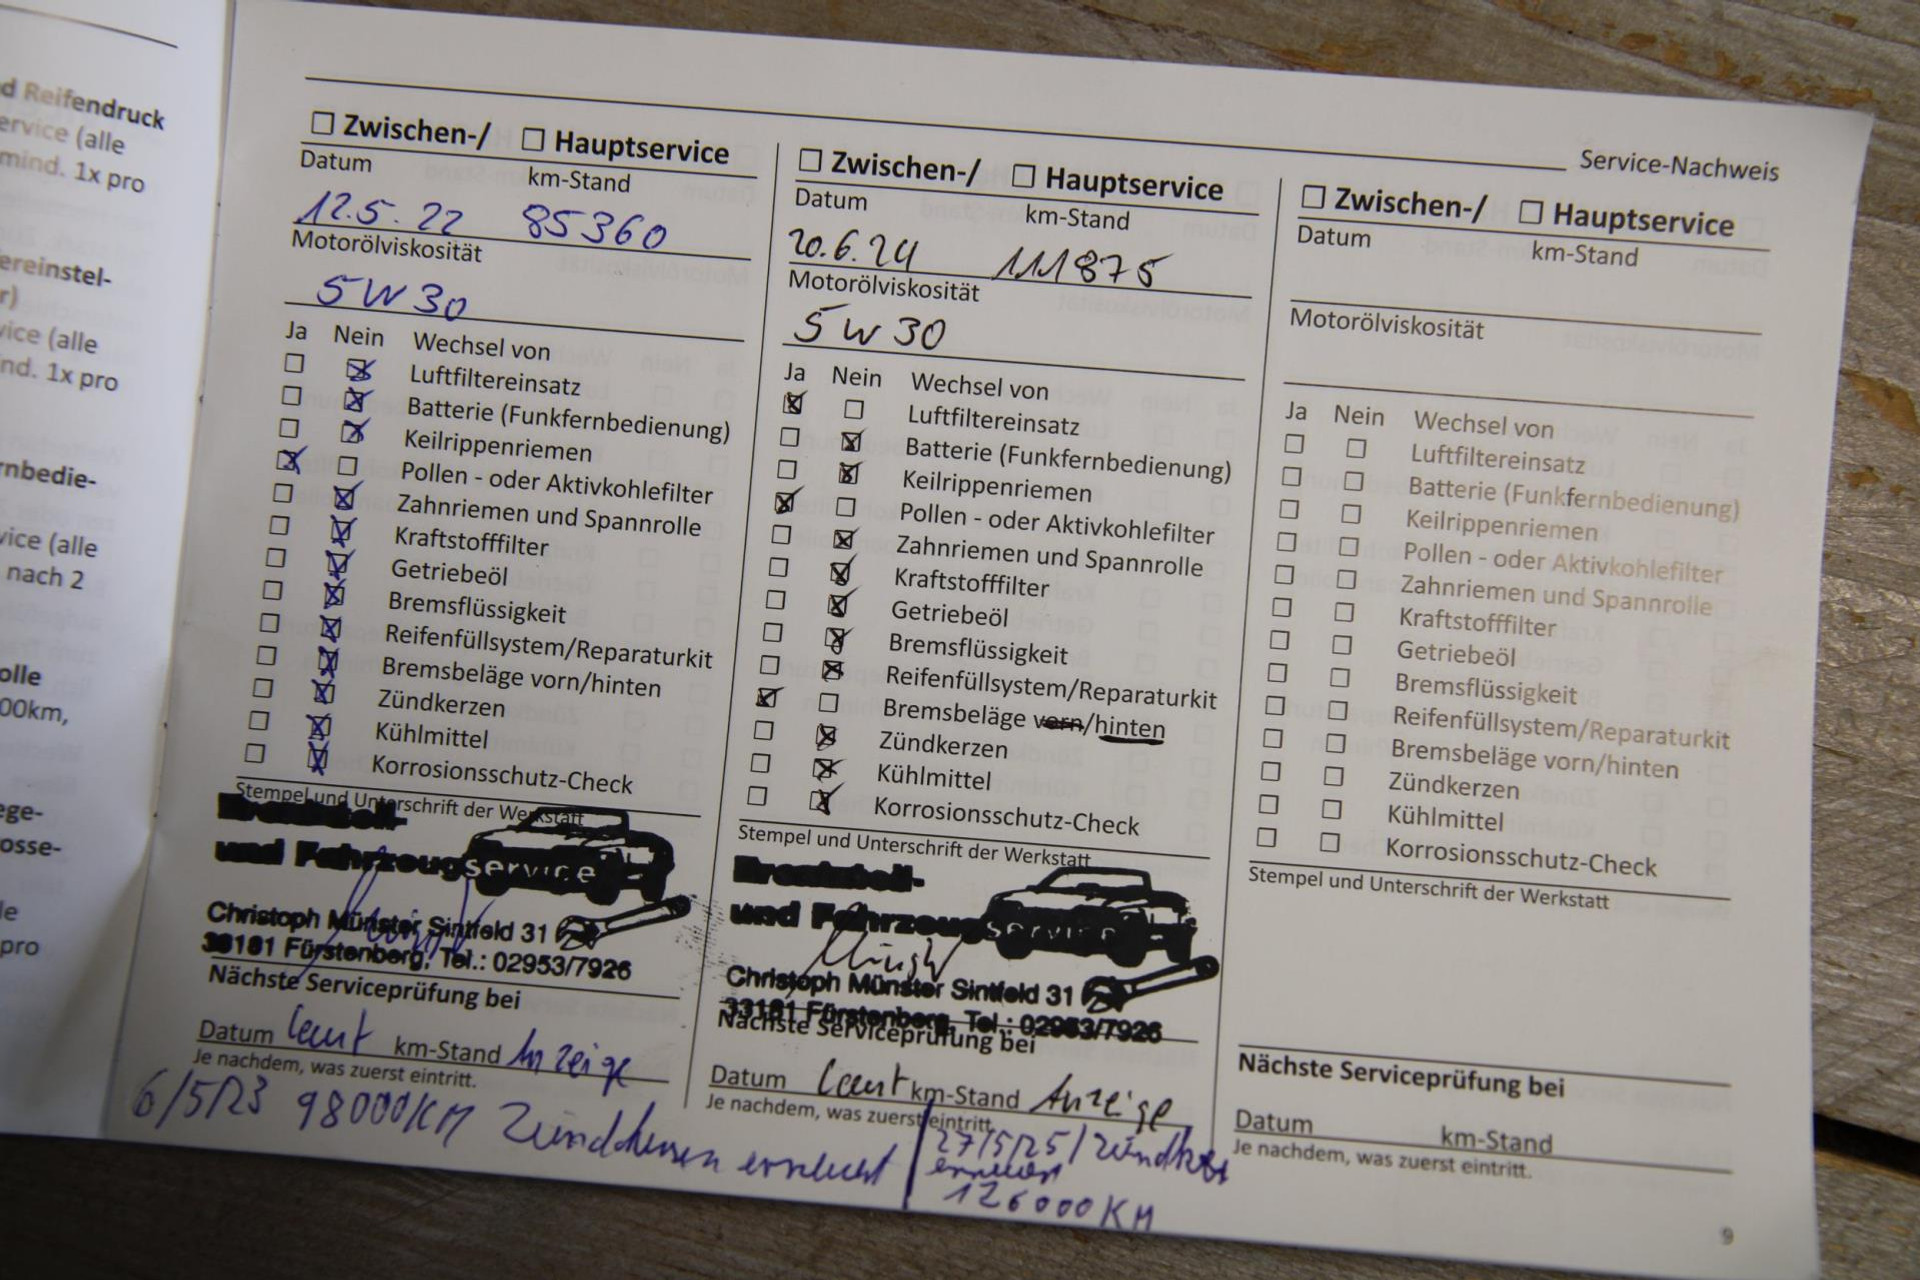 d Reifendruck
ervice (alle
mind. 1x pro
ereinstel-
r)
vice (alle
nd. 1x pro
rnbedie-
vice (alle
nach 2
olle
00km,
ege-
osse-
le
pro
Service-Nachweis
☐ Zwischen-/ ☐ Hauptservice
Datum km-Stand
12.5.22 85360
Motorölviskosität
5W30
Ja Nein Wechsel von
☐ ☒ Luftfiltereinsatz
☐ ☒ Batterie (Funkfernbedienung)
☐ ☒ Keilrippenriemen
☒ ☐ Pollen - oder Aktivkohlefilter
☐ ☒ Zahnriemen und Spannrolle
☐ ☒ Kraftstofffilter
☐ ☒ Getriebeöl
☐ ☒ Bremsflüssigkeit
☐ ☒ Reifenfüllsystem/Reparaturkit
☐ ☒ Bremsbeläge vorn/hinten
☐ ☒ Zündkerzen
☐ ☒ Kühlmittel
☐ ☒ Korrosionsschutz-Check
Stempel und Unterschrift der Werkstatt
und Fahrzeugservice
Christoph Münster Sintfeld 31
33181 Fürstenberg, Tel.: 02953/7926
Nächste Serviceprüfung bei
Datum laut km-Stand Anzeige
Je nachdem, was zuerst eintritt.
6/5/23 98000KM Zündkerzen erneuert
☐ Zwischen-/ ☐ Hauptservice
Datum km-Stand
20.6.24 111875
Motorölviskosität
5W30
Ja Nein Wechsel von
☒ ☐ Luftfiltereinsatz
☐ ☒ Batterie (Funkfernbedienung)
☐ ☒ Keilrippenriemen
☒ ☐ Pollen - oder Aktivkohlefilter
☐ ☒ Zahnriemen und Spannrolle
☐ ☒ Kraftstofffilter
☐ ☒ Getriebeöl
☐ ☒ Bremsflüssigkeit
☐ ☒ Reifenfüllsystem/Reparaturkit
☒ ☐ Bremsbeläge vorn/hinten
☐ ☒ Zündkerzen
☐ ☒ Kühlmittel
☐ ☒ Korrosionsschutz-Check
Stempel und Unterschrift der Werkstatt
und Fahrzeugservice
Christoph Münster Sintfeld 31
33181 Fürstenberg, Tel.: 02953/7926
Nächste Serviceprüfung bei
Datum laut km-Stand Anzeige
Je nachdem, was zuerst eintritt.
27/5/25/
erneuert
126000KM
☐ Zwischen-/ ☐ Hauptservice
Datum km-Stand
Motorölviskosität
Ja Nein Wechsel von
☐ ☐ Luftfiltereinsatz
☐ ☐ Batterie (Funkfernbedienung)
☐ ☐ Keilrippenriemen
☐ ☐ Pollen - oder Aktivkohlefilter
☐ ☐ Zahnriemen und Spannrolle
☐ ☐ Kraftstofffilter
☐ ☐ Getriebeöl
☐ ☐ Bremsflüssigkeit
☐ ☐ Reifenfüllsystem/Reparaturkit
☐ ☐ Bremsbeläge vorn/hinten
☐ ☐ Zündkerzen
☐ ☐ Kühlmittel
☐ ☐ Korrosionsschutz-Check
Stempel und Unterschrift der Werkstatt
Nächste Serviceprüfung bei
Datum km-Stand
Je nachdem, was zuerst eintritt.
9